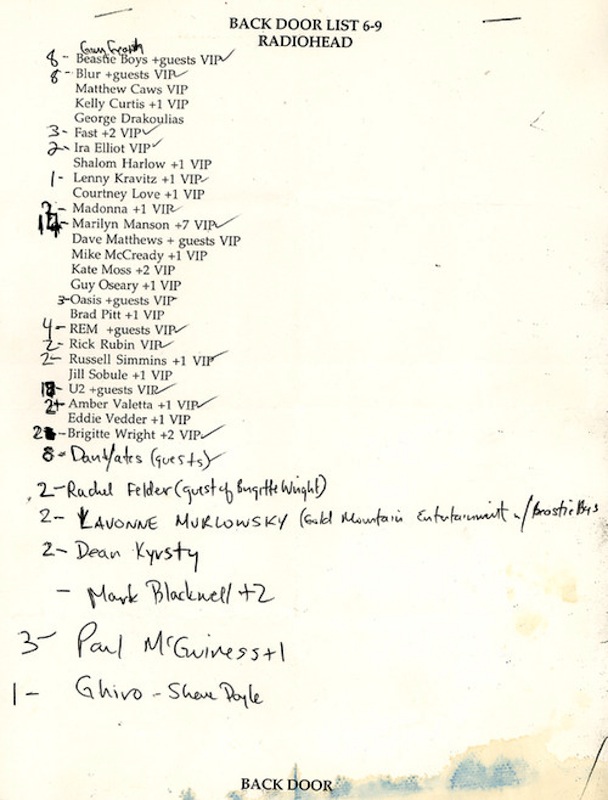 BACK DOOR LIST 6-9
RADIOHEAD
8- Beastie Boys +guests VIP✓
8- Blur +guests VIP✓
Matthew Caws VIP
Kelly Curtis +1 VIP
George Drakoulias
3- Fast +2 VIP✓
2- Ira Elliot VIP✓
Shalom Harlow +1 VIP
1- Lenny Kravitz +1 VIP✓
Courtney Love +1 VIP
Madonna +1 VIP✓
Marilyn Manson +7 VIP✓
Dave Matthews + guests VIP
Mike McCready +1 VIP
Kate Moss +2 VIP
Guy Oseary +1 VIP
3-Oasis +guests VIP
Brad Pitt +1 VIP
4- REM +guests VIP✓
2- Rick Rubin VIP✓
2- Russell Simmins +1 VIP✓
Jill Sobule +1 VIP
U2 +guests VIP✓
Amber Valetta +1 VIP✓
Eddie Vedder +1 VIP
Brigitte Wright +2 VIP✓
8- (guests)✓
2-Rachel Felder (guest of Brigitte Wright)
2- LAVONNE MURLOWSKY (Gold Mountain Entertainment w/Beastie Boys
2- Dean Kyrsty
- Mark Blackwell +2
3- Paul McGuiness +1
1- Ghiro - Shane Doyle
BACK DOOR